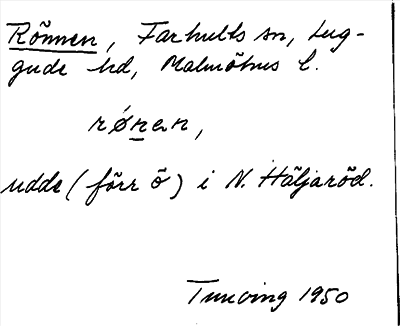 Rönnen, Farhults sn, Lug-
gude hd, Malmöhus l.
røn̲en,
udde (förr ö) i N. Häljaröd.
Tuneving 1950